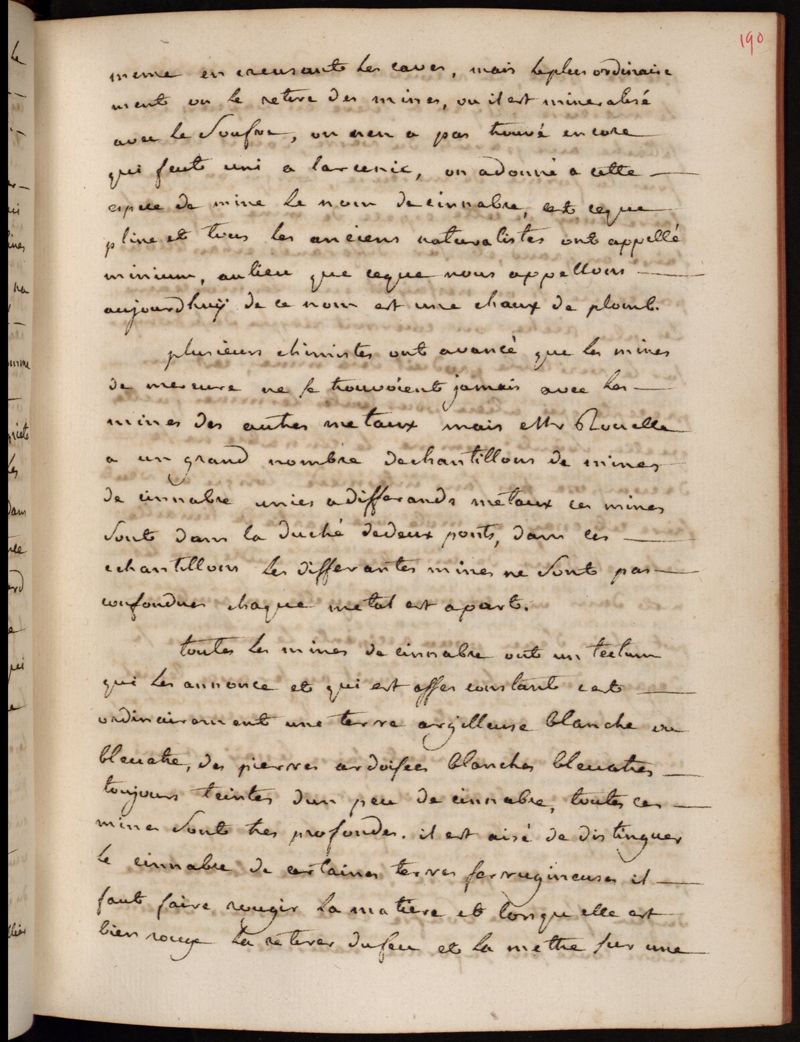 190
meme en creusant les caves, mais leplus ordinaire
ment on le retire des mines, ou il est mineralisé
avec le Soufre, on nen a pas trouvé encore
qui feut uni a larcenic, on adonné a cette
espece de mine le nom de cinnabre, cest ceque
pline et tous les anciens naturalistes ont appellé
minium, aulieu que ceque nous appellons
aujourdhuÿ de ce nom est une chaux de plomb.
plusieurs chimistes ont avancé que les mines
de mercure ne se trouvoient jamais avec les
mines des autres metaux mais Mr Rouelle
a un grand nombre dechantillons de mines
de cinnabre unies adifferands metaux ces mines
Sont dans la duché dedeux ponts, dans ces
echantillons les differantes mines ne Sont pas
confondues chaque metal est apart.
toutes les mines de cinnabre ont un tectum
qui les annonce et qui est assés constant cest
ordinairement une terre argilleuse blanche ou
bleuatre, des pierres ardoisées blanches bleuatres
toujours teintes dun peu de cinnabre, toutes ces
mines Sont tres profondes. il est aisé de distinguer
le cinnabre de certaines terres ferrugineuses il
faut faire rougir la matiere et lorsqu elle est
bien rouge la retirer dufeu et la mettre sur une